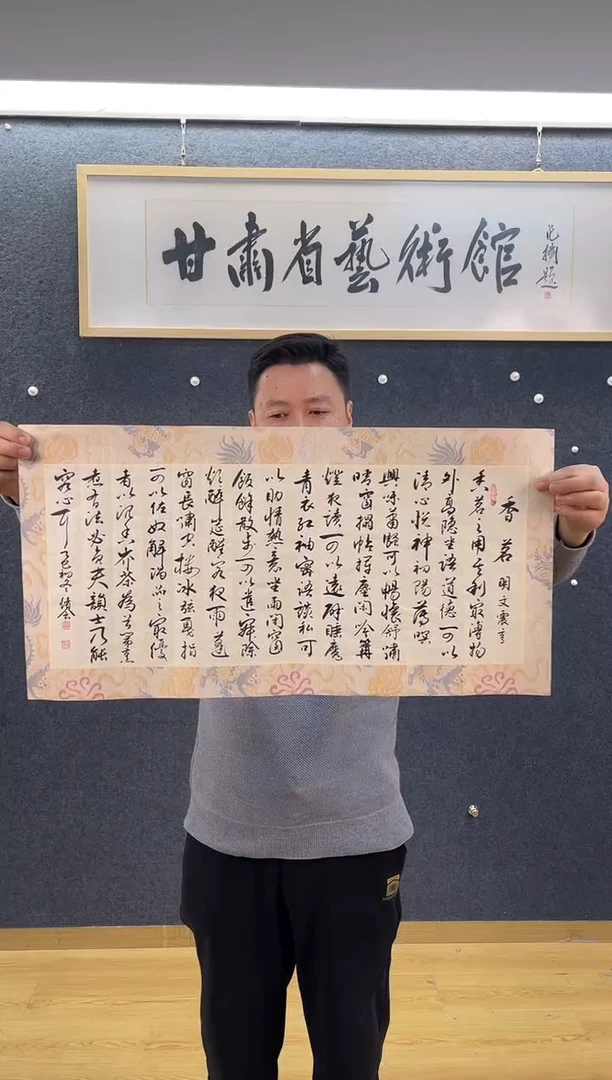 甘肅省藝術館
題
香茗 明文震亨
香茗之用其利最溥物
外高隐坐语道德可以
清心悦神初陽薄暝
興味蕭騷可以暢懷舒嘯
晴窗搨帖揮麈闲吟篝
燈夜读可以遠辟睡魔
青衣红袖密语談私可
以助情熱意坐雨闭窗
飯餘散步可以遣寂除
烦醉筵醒客夜雨蓬
窗長嘯空楼冰弦戛指
可以佐欢解渴品之最優
者以沉香岕茶為首第焚
煮有法必貞夫韻士乃能
究心耳